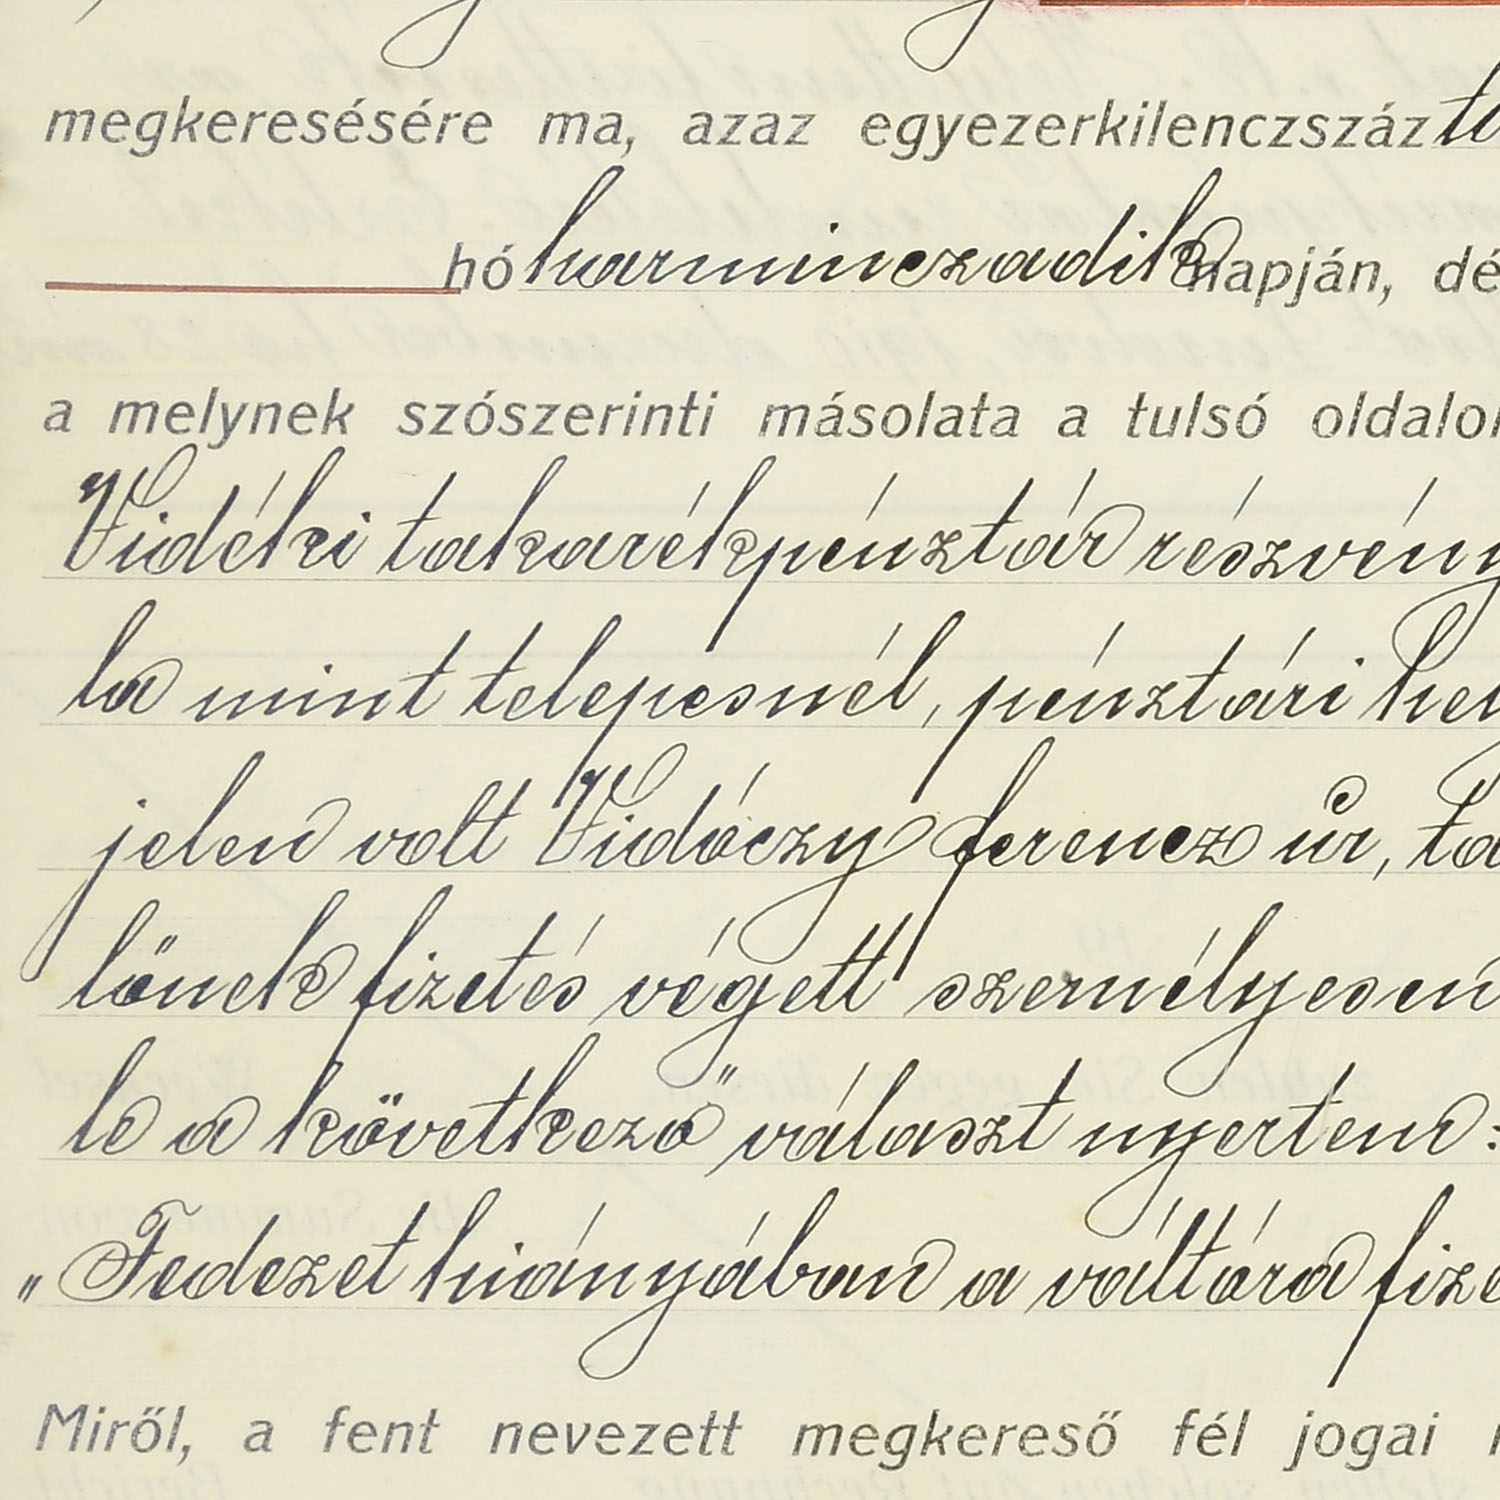 megkeresésére ma, azaz egyezerkilenczszáz
hó harminczadik napján, dé
a melynek szószerinti másolata a tulsó oldalon
Vidéki takarékpénztár részvény
la mint telepesnél, pénztári hel
jelen volt Vidóczy ferencz úr, ta
lőnek fizetés végett személyesen
le a következő választ nyertem:
„Fedezet hiányában a váltóra fize
Miről, a fent nevezett megkereső fél jogai